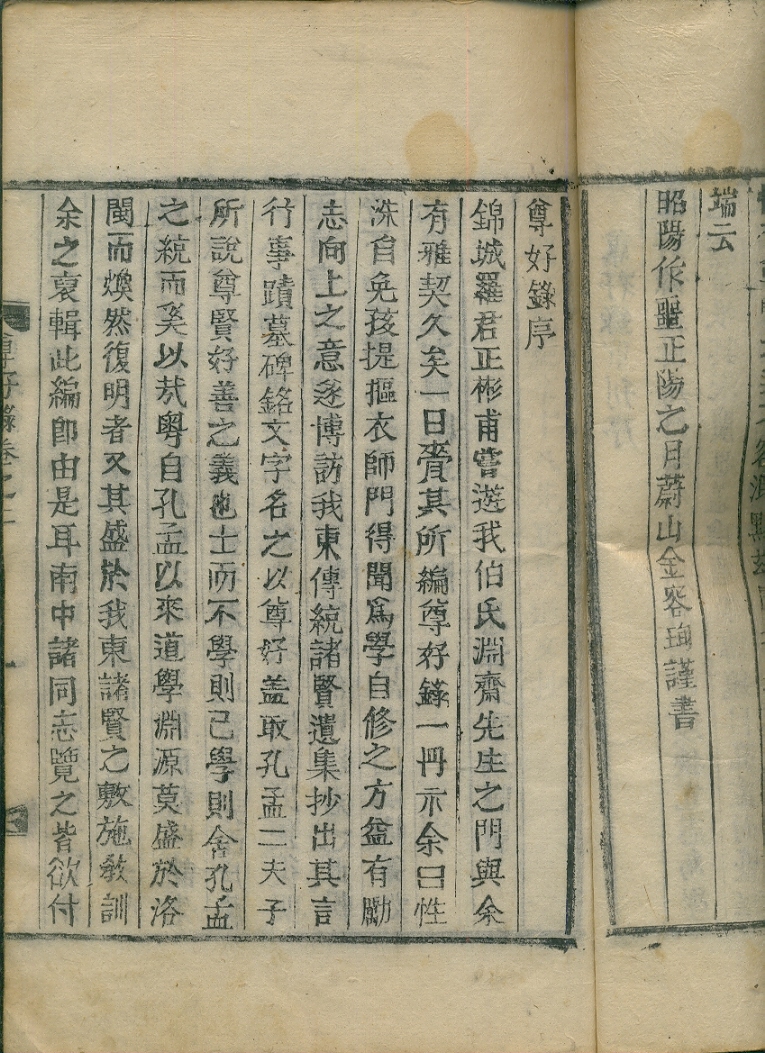 端云
昭陽作噩正陽之月蔚山金容珣謹書
尊好錄序
錦城羅君正彬甫嘗遊我伯氏淵齋先生之門與余
有雅契久矣一日賫其所編尊好錄一冊示余曰性
洙自免孩提摳衣師門得聞爲學自修之方益有勵
志向上之意遂博訪我東傳統諸賢遺集抄出其言
行事蹟墓碑銘文字名之以尊好盖取孔孟二夫子
所說尊賢好善之義也士而不學則已學則舍孔孟
之統而奚以㢤粤自孔孟以來道學淵源莫盛於洛
閩而煥然復明者又其盛於我東諸賢之敷施敎訓
余之裒輯此編卽由是耳南中諸同志覽之皆欲付
尊好錄卷之